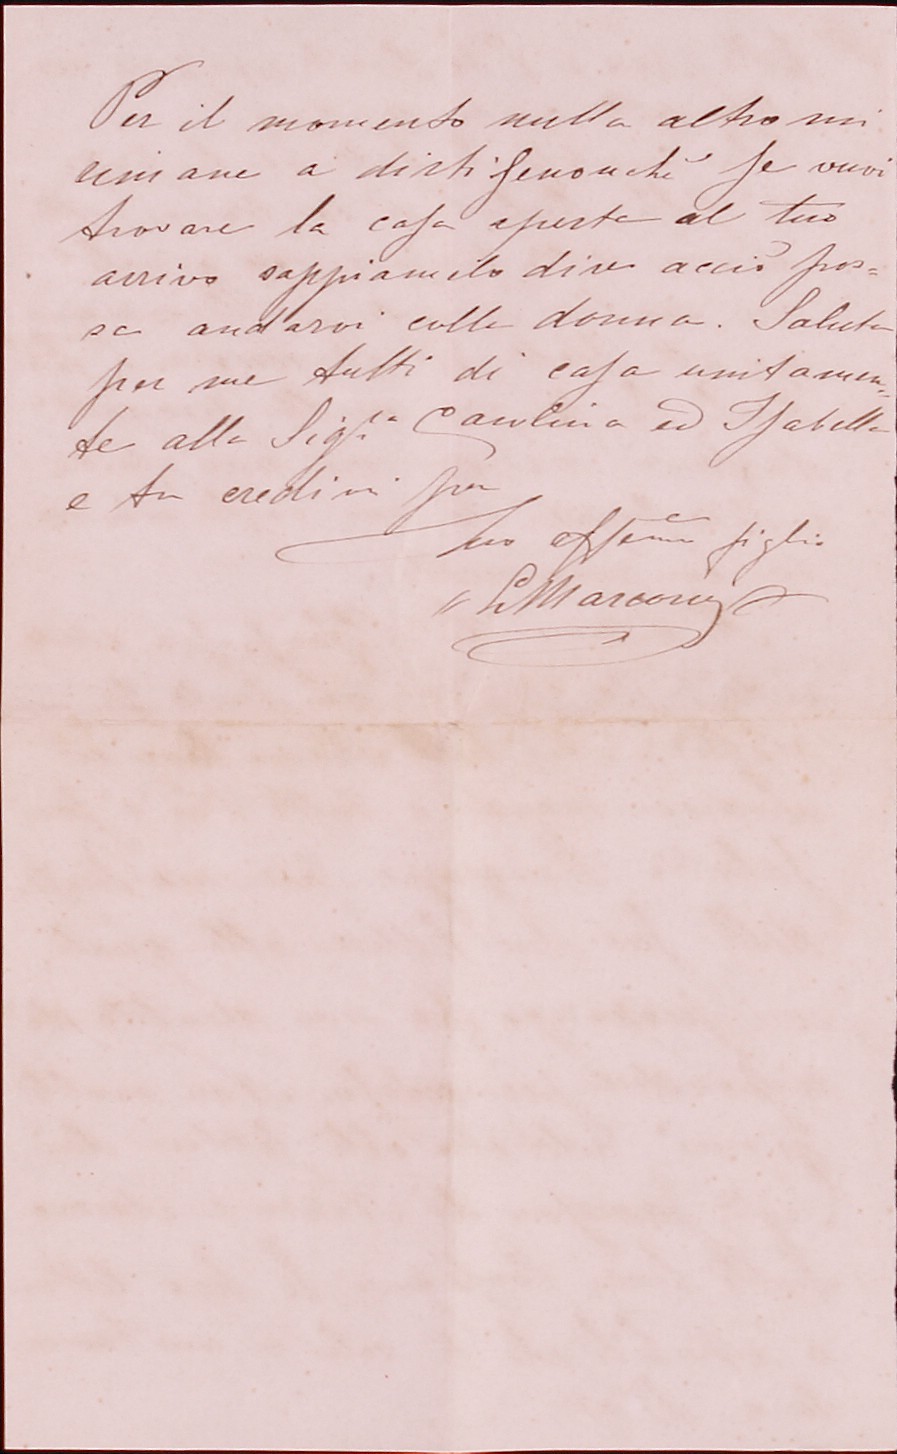 Per il momento nulla altro mi
rimane a dirti senonchè se vuoi
trovare la casa aperta al tuo
arrivo sappiamelo dire acciò pos=
sa andarvi colla donna. Saluta
per me tutti di casa unitamen=
te alla Sig.ra Carolina ed Isabella
e tu credimi per
tuo affemo figlio
LMarconi